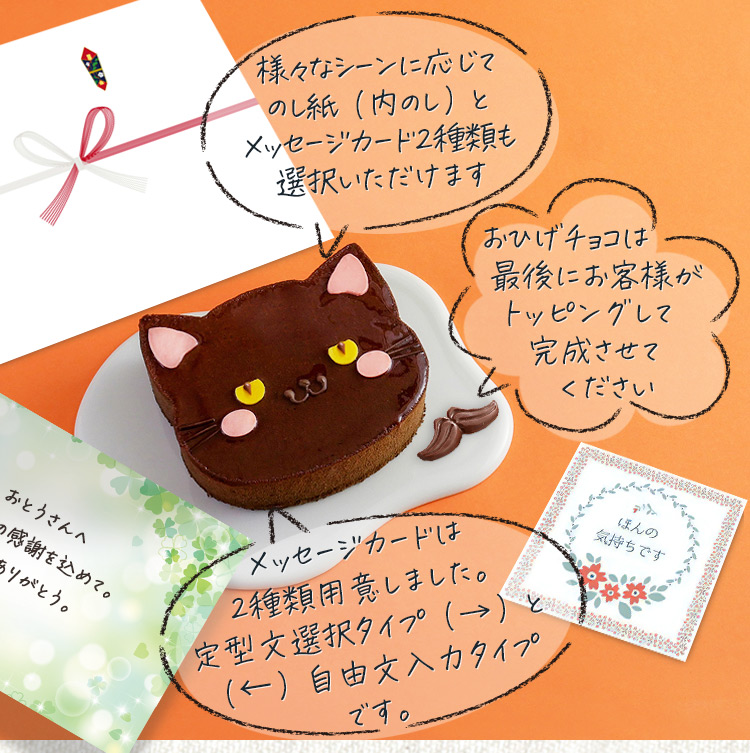 様々なシーンに応じて
のし紙（内のし）と
メッセージカード2種類も
選択いただけます
おひげチョコは
最後にお客様が
トッピングして
完成させて
ください
おとうさんへ
の感謝を込めて。
ありがとう。
ほんの
気持ちです
メッセージカードは
2種類用意しました。
定型文選択タイプ（→）と
（←）自由文入力タイプ
です。